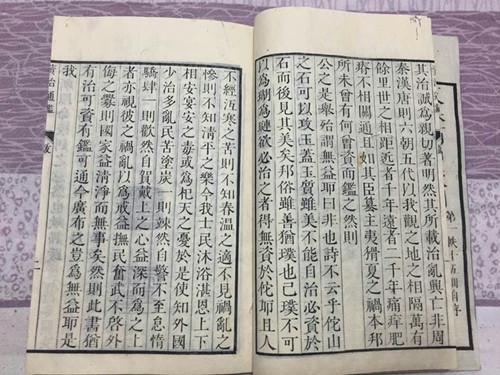 第一帙十五冊自
其治誠爲親切著明然其所載治亂興亡非周
秦漢唐則六朝五代以我觀之地之相隔萬有
餘里世之相距近者千年遠者二千年痛痒肥
瘠不相關通且如其臣簒主夷猾夏之禍本邦
所未曾有何嘗資而鑑之然則
公之是舉殆謂無益耶曰非也詩不云乎佗山
之石可以攻玉蓋玉質雖美不能自治必資於
石而後見其美矣邦俗雖善猶璞也已璞不可
以爲瑚爲璉欲必治之者得無資於佗耶且人
不經沍寒之苦則不知春溫之適不見禍亂之
慘則不知淸平之樂今我士民沐浴湛恩上下
相安宴安之毒或爲杞天之憂於是使知外國
少治多亂民苦塗炭一則竦然自警不至怠惰
驕肆一則歡然自賀戴上之心益深而爲之上
者亦視彼之禍亂以爲戒益撫民奮武不啓外
侮之釁則國家益淸淨而無事矣然則此書猶
有治可資有鑑可通今廣布之豈爲無益耶是
我
資治通鑑 叙 二